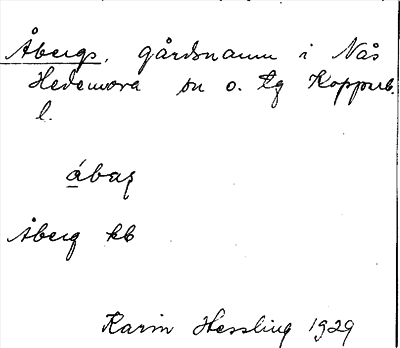 Åbergs, gårdsnamn i Nås
Hedemora sn o. tg Kopparb.
l.
ábaʒ
Åberg kb
Karin Hessling 1929